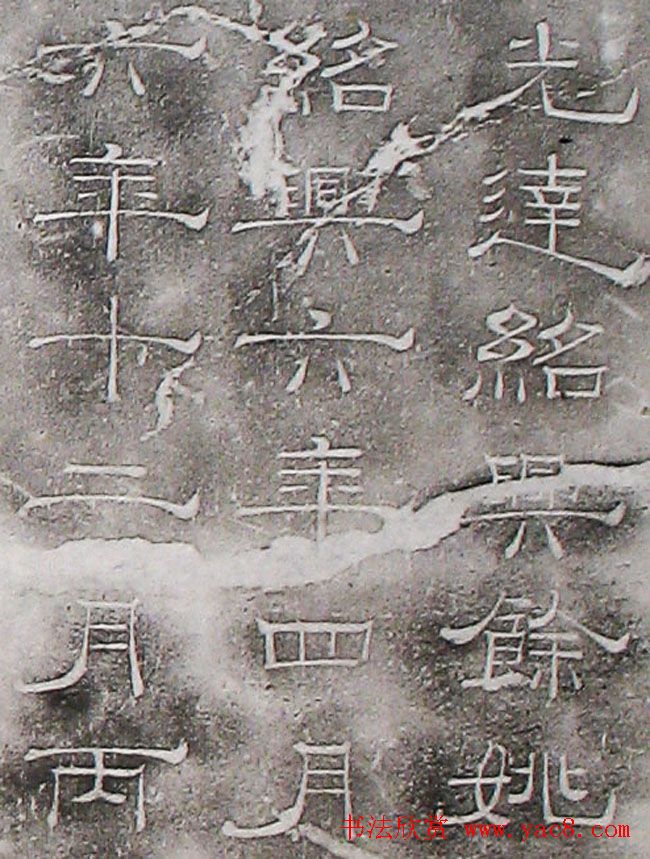 光達紹興餘姚
紹興六年四月
六年十二月丙
书法欣赏 www.yac8.com